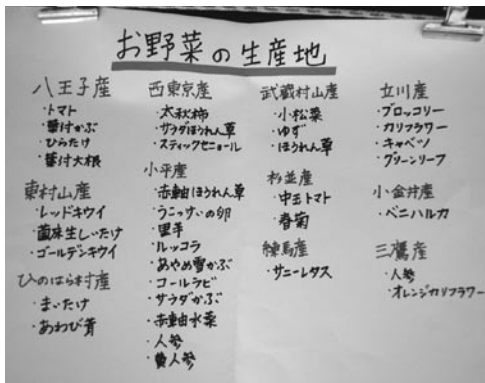 お野菜の生産地
八王子産
・トマト
・葉付かぶ
・ひらたけ
・葉付大根
東村山産
・レッドキウイ
・菌床生しいたけ
・ゴールデンキウイ
ひのはら村産
・まいたけ
・あわび茸
西東京産
・太秋柿
・サラダほうれん草
・スティックセニョール
小平産
・赤軸ほうれん草
・うこっけいの卵
・里芋
・ルッコラ
・あやめ雪かぶ
・コールラビ
・サラダかぶ
・赤軸水菜
・人参
・黄人参
武蔵村山産
・小松菜
・ゆず
・ほうれん草
杉並産
・中玉トマト
・春菊
練馬産
・サニーレタス
立川産
・ブロッコリー
・カリフラワー
・キャベツ
・グリーンリーフ
小金井産
・ベニハルカ
三鷹産
・人参
・オレンジカリフラワー